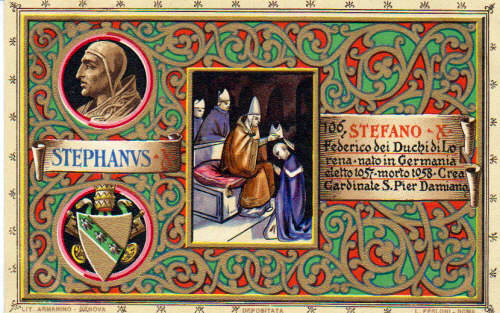 STEPHANVS·X
106, STEFANO·X·
Federico dei Duchi di Lo
rena-nato in Germania
eletto 1057-morto 1058-Crea
Cardinale S. Pier Damiano
LIT. ARMANINO - GENOVA
DEPOSITATA
L. FEOLONI - ROMA